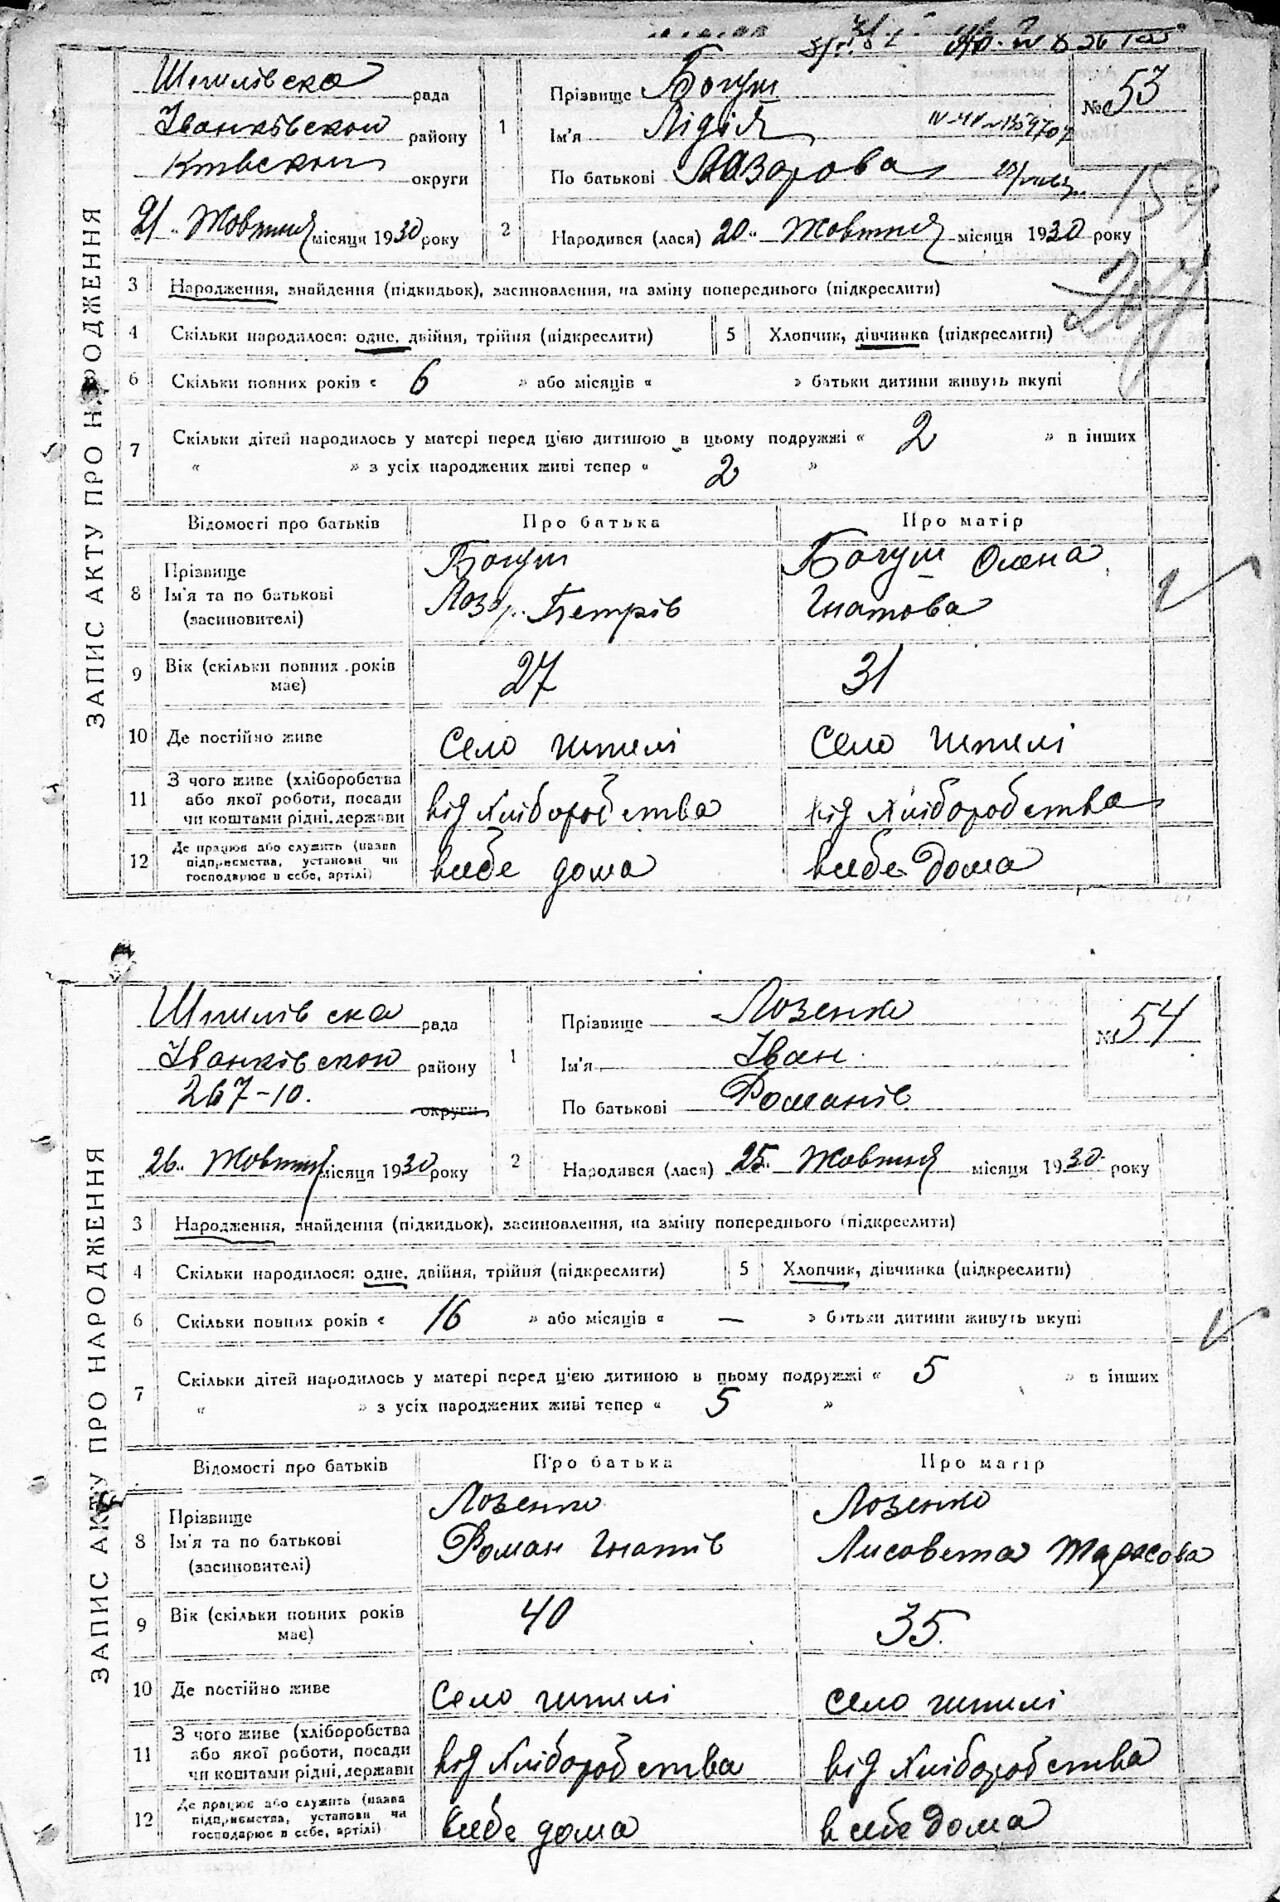 ЗАПИС АКТУ ПРО НАРОДЖЕННЯ
Шпилівська рада
Іванківскої району
Київскої округи
21. Жовтня місяця 1930 року
№ 53
1
Прізвище Богуш
Ім'я Лідія
По батькові Лазарова
159
2
Народився (лася) 20. Жовтня місяця 1930 року
267
3 Народження, знайдення (підкидьок), засиновлення, на зміну попереднього (підкреслити)
4 Скільки народилося: одне, двійня, трійня (підкреслити)
5 Хлопчик, дівчинка (підкреслити)
6 Скільки повних років « 6 » або місяців « » батьки дитини живуть вкупі
7 Скільки дітей народилось у матері перед цією дитиною в цьому подружжі « 2 » в інших
« » з усіх народжених живі тепер « 2 »
Відомості про батьків Про батька Про матір
8 Прізвище Богуш Богуш Олена
Ім'я та по батькові Лазар Петрів Гнатова
(засиновителі)
9 Вік (скільки повних років має) 27 31
10 Де постійно живе Село шпилі Село шпилі
11 З чого живе (хліборобства
або якої роботи, посади від хліборобства від хліборобства
чи коштами рідні, держави
12 Де працює або служить (назва
підприємства, установи чи всебе дома всебе дома
господарює в себе, артілі)
ЗАПИС АКТУ ПРО НАРОДЖЕННЯ
Шпилівска рада
Іванківскои району
267-10. округи
26. Жовтня місяця 1930 року
№ 54
1
Прізвище Лозенко
Ім'я Іван
По батькові Романів
2
Народився (лася) 25. Жовтня місяця 1930 року
3 Народження, знайдення (підкидьок), засиновлення, на зміну попереднього (підкреслити)
4 Скільки народилося: одне, двійня, трійня (підкреслити)
5 Хлопчик, дівчинка (підкреслити)
6 Скільки повних років « 16 » або місяців « — » батьки дитини живуть вкупі
7 Скільки дітей народилось у матері перед цією дитиною в цьому подружжі « 5 » в інших
« » з усіх народжених живі тепер « 5 »
Відомості про батьків Про батька Про матір
8 Прізвище Лозенко Лозенко
Ім'я та по батькові Роман Гнатів Лисовета Тарасова
(засиновителі)
9 Вік (скільки повних років має) 40 35.
10 Де постійно живе Село шпилі село шпилі
11 З чого живе (хліборобства
або якої роботи, посади від хліборобства від хліборобства
чи коштами рідні, держави
12 Де працює або служить (назва
підприємства, установи чи всебе дома в себе дома
господарює в себе, артілі)